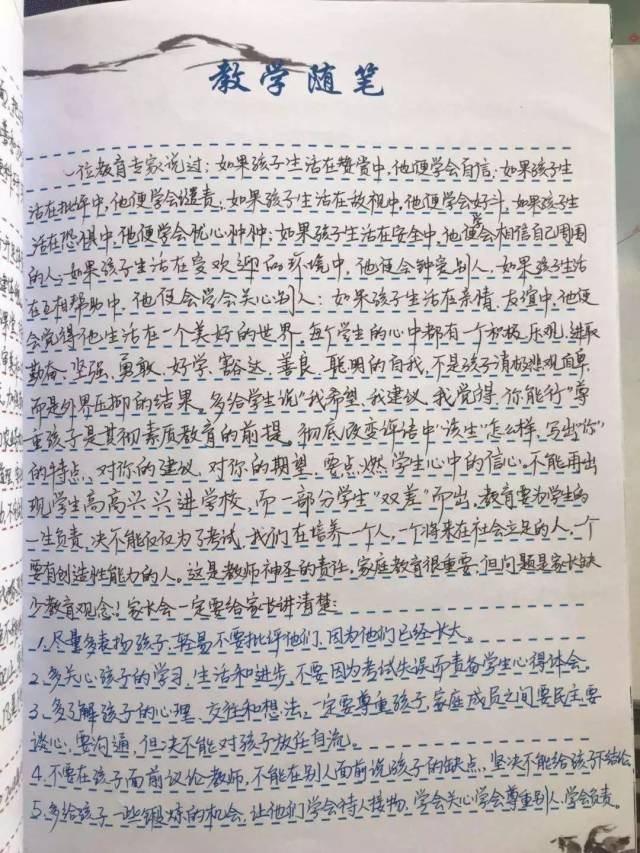 教学随笔
一位教育专家说过：如果孩子生活在赞赏中，他便学会自信；如果孩子生
活在批评中，他便学会谴责；如果孩子生活在敌视中，他便学会好斗；如果孩子生
活在恐惧中，他便学会忧心忡忡；如果孩子生活在安全中，他便学会相信自己周围
的人；如果孩子生活在受欢迎的环境中，他便会钟爱别人，如果孩子生活
在互相帮助中，他便会学会关心别人；如果孩子生活在亲情、友谊中，他便
会觉得他生活在一个美好的世界。每个学生的心中都有一个积极、乐观、进取
勤奋、坚强、勇敢、好学、豁达、善良、聪明的自我，不是孩子消极悲观自卑，
而是外界压抑的结果。多给学生说"我希望、我建议、我觉得、你能行"尊
重孩子是其初素质教育的前提。彻底改变评语中"该生"怎么样，写出"你"
的特点、对你的建议、对你的期望，要点燃学生心中的信心。不能再出
现学生高高兴兴进学校，而一部分学生"双差"而出，教育要为学生的
一生负责，决不能仅仅为了考试，我们在培养一个人，一个将来在社会立足的人，一个
要有创造性能力的人。这是教师神圣的责任，家庭教育很重要，但问题是家长缺
少教育观念！家长会一定要给家长讲清楚：
1、尽量多表扬孩子，轻易不要批评他们，因为他们已经长大。
2、多关心孩子的学习、生活和进步，不要因为考试失误而责备学生心得体会。
3、多了解孩子的心理、交往和想法。一定要尊重孩子，家庭成员之间要民主要
谈心，要沟通，但决不能对孩子放任自流。
4、不要在孩子面前议论教师，不能在别人面前说孩子的缺点，坚决不能给孩子下结论。
5、多给孩子一些锻炼的机会，让他们学会待人接物，学会关心学会尊重别人，学会负责。